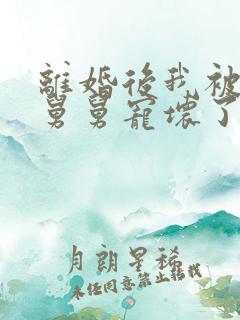 離婚後我被
舅舅寵壞了
月朗星稀
未经同意禁止转载